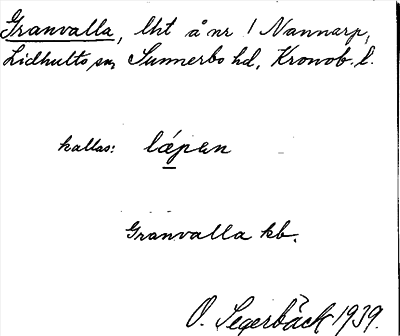 Granvalla, lht å nr 1 Nannarp,
Lidhults sn, Sunnerbo hd, Kronob. l.
kallas: læpen
Granvalla kb.
O. Segerbäck 1939.